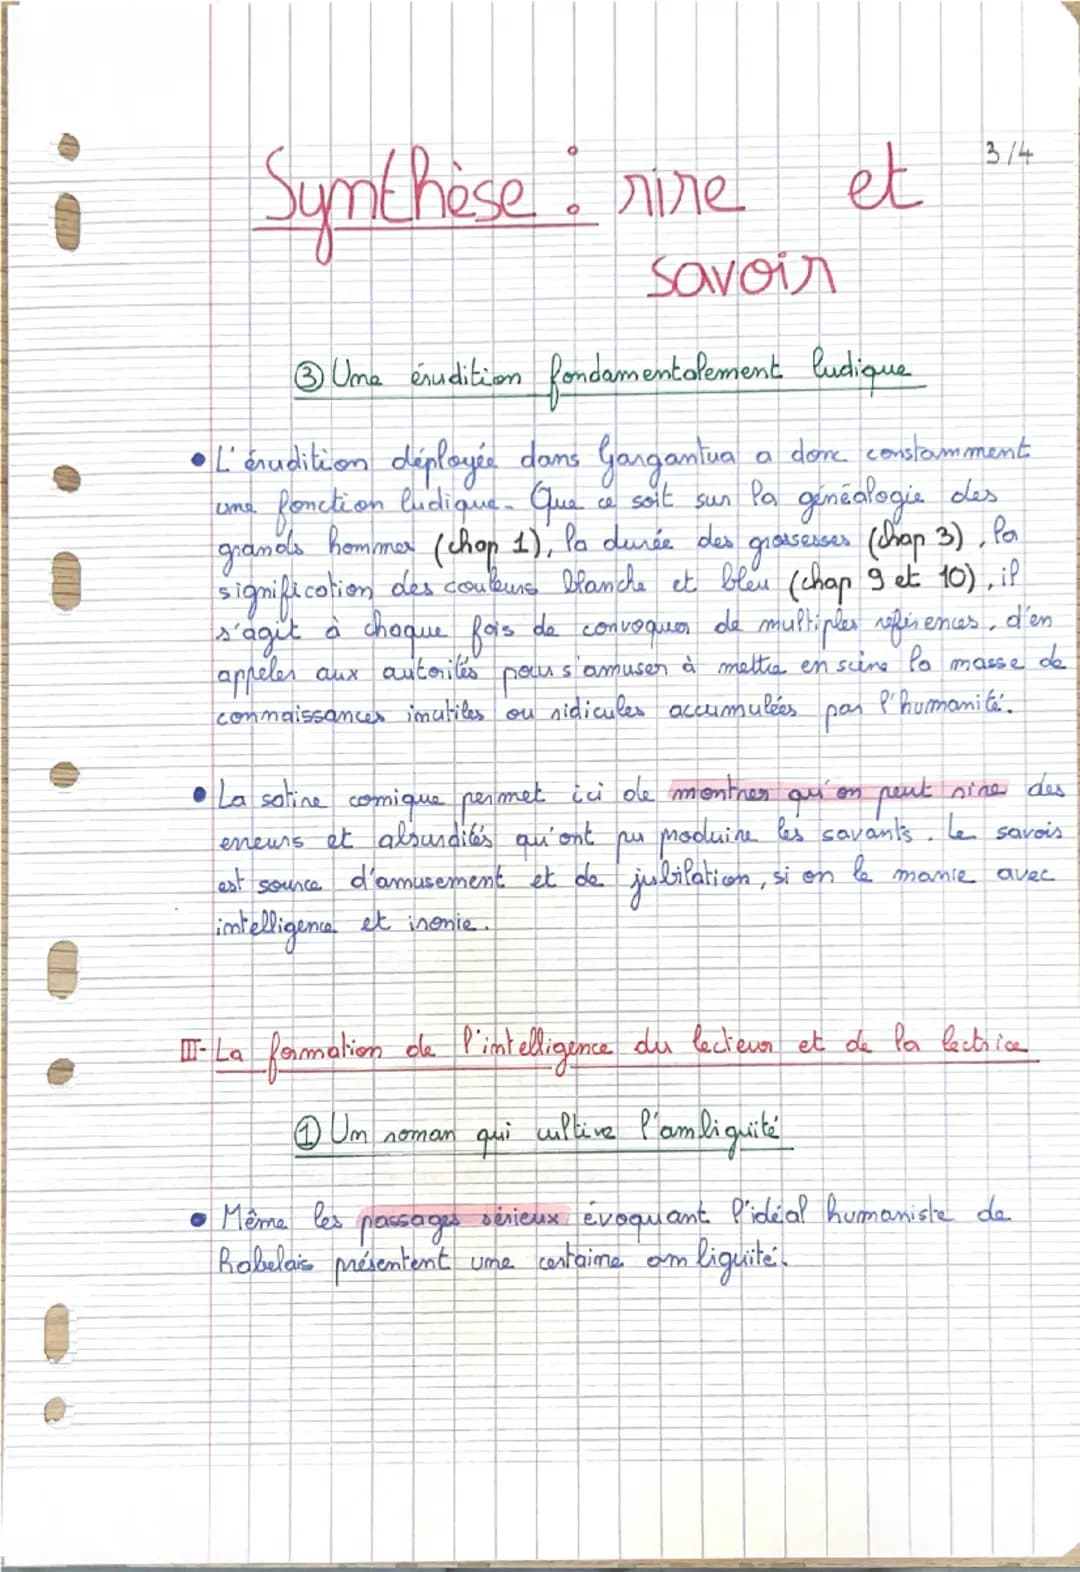 3/4
Synthèse : rire et
savoir
③ Une érudition fondamentalement ludique
• L'érudition déployée dans Gargantua a donc constamment
une fonction ludique. Que ce soit sur la généalogie des
grands hommes (chap 1), la durée des grossesses (chap 3), la
signification des couleurs blanche et bleu (chap 9 et 10), il
s'agit à chaque fois de convoquer de multiples références, d'en
appeler aux autorités pour s'amuser à mettre en scène la masse de
connaissances inutiles ou ridicules accumulées par l'humanité.
• La satire comique permet ici de montrer qu'on peut rire des
erreurs et absurdités qu'ont pu produire les savants. Le savoir
est source d'amusement et de jubilation, si on le manie avec
intelligence et ironie.
III- La formation de l'intelligence du lecteur et de la lectrice
① Un roman qui cultive l'ambiguïté
• Même les passages sérieux évoquant l'idéal humaniste de
Rabelais présentent une certaine ambiguïté.